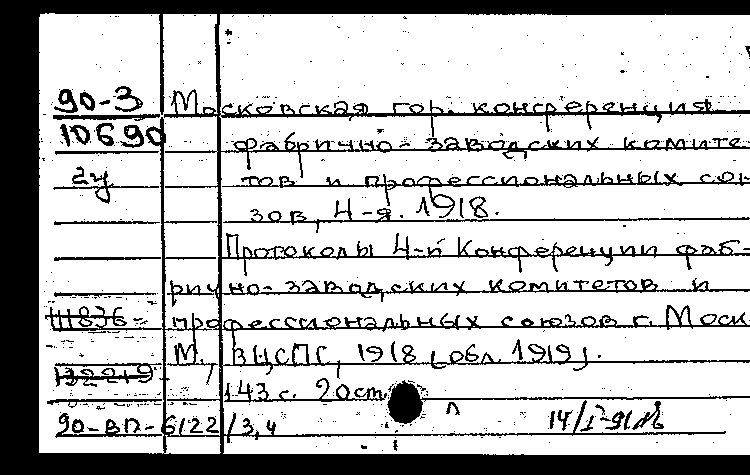 90-3 Московская гор. конференция
10690 фабрично-заводских комите-
ау тов и профессиональных сою-
зов, 4-я. 1918.
Протоколы 4-й Конференции фаб-
рично-заводских комитетов и
профессиональных союзов г. Моск
М., ВЦСПС, 1918 [обл. 1919].
143 с. 20cm.
90-ВП-6122/3,4 п